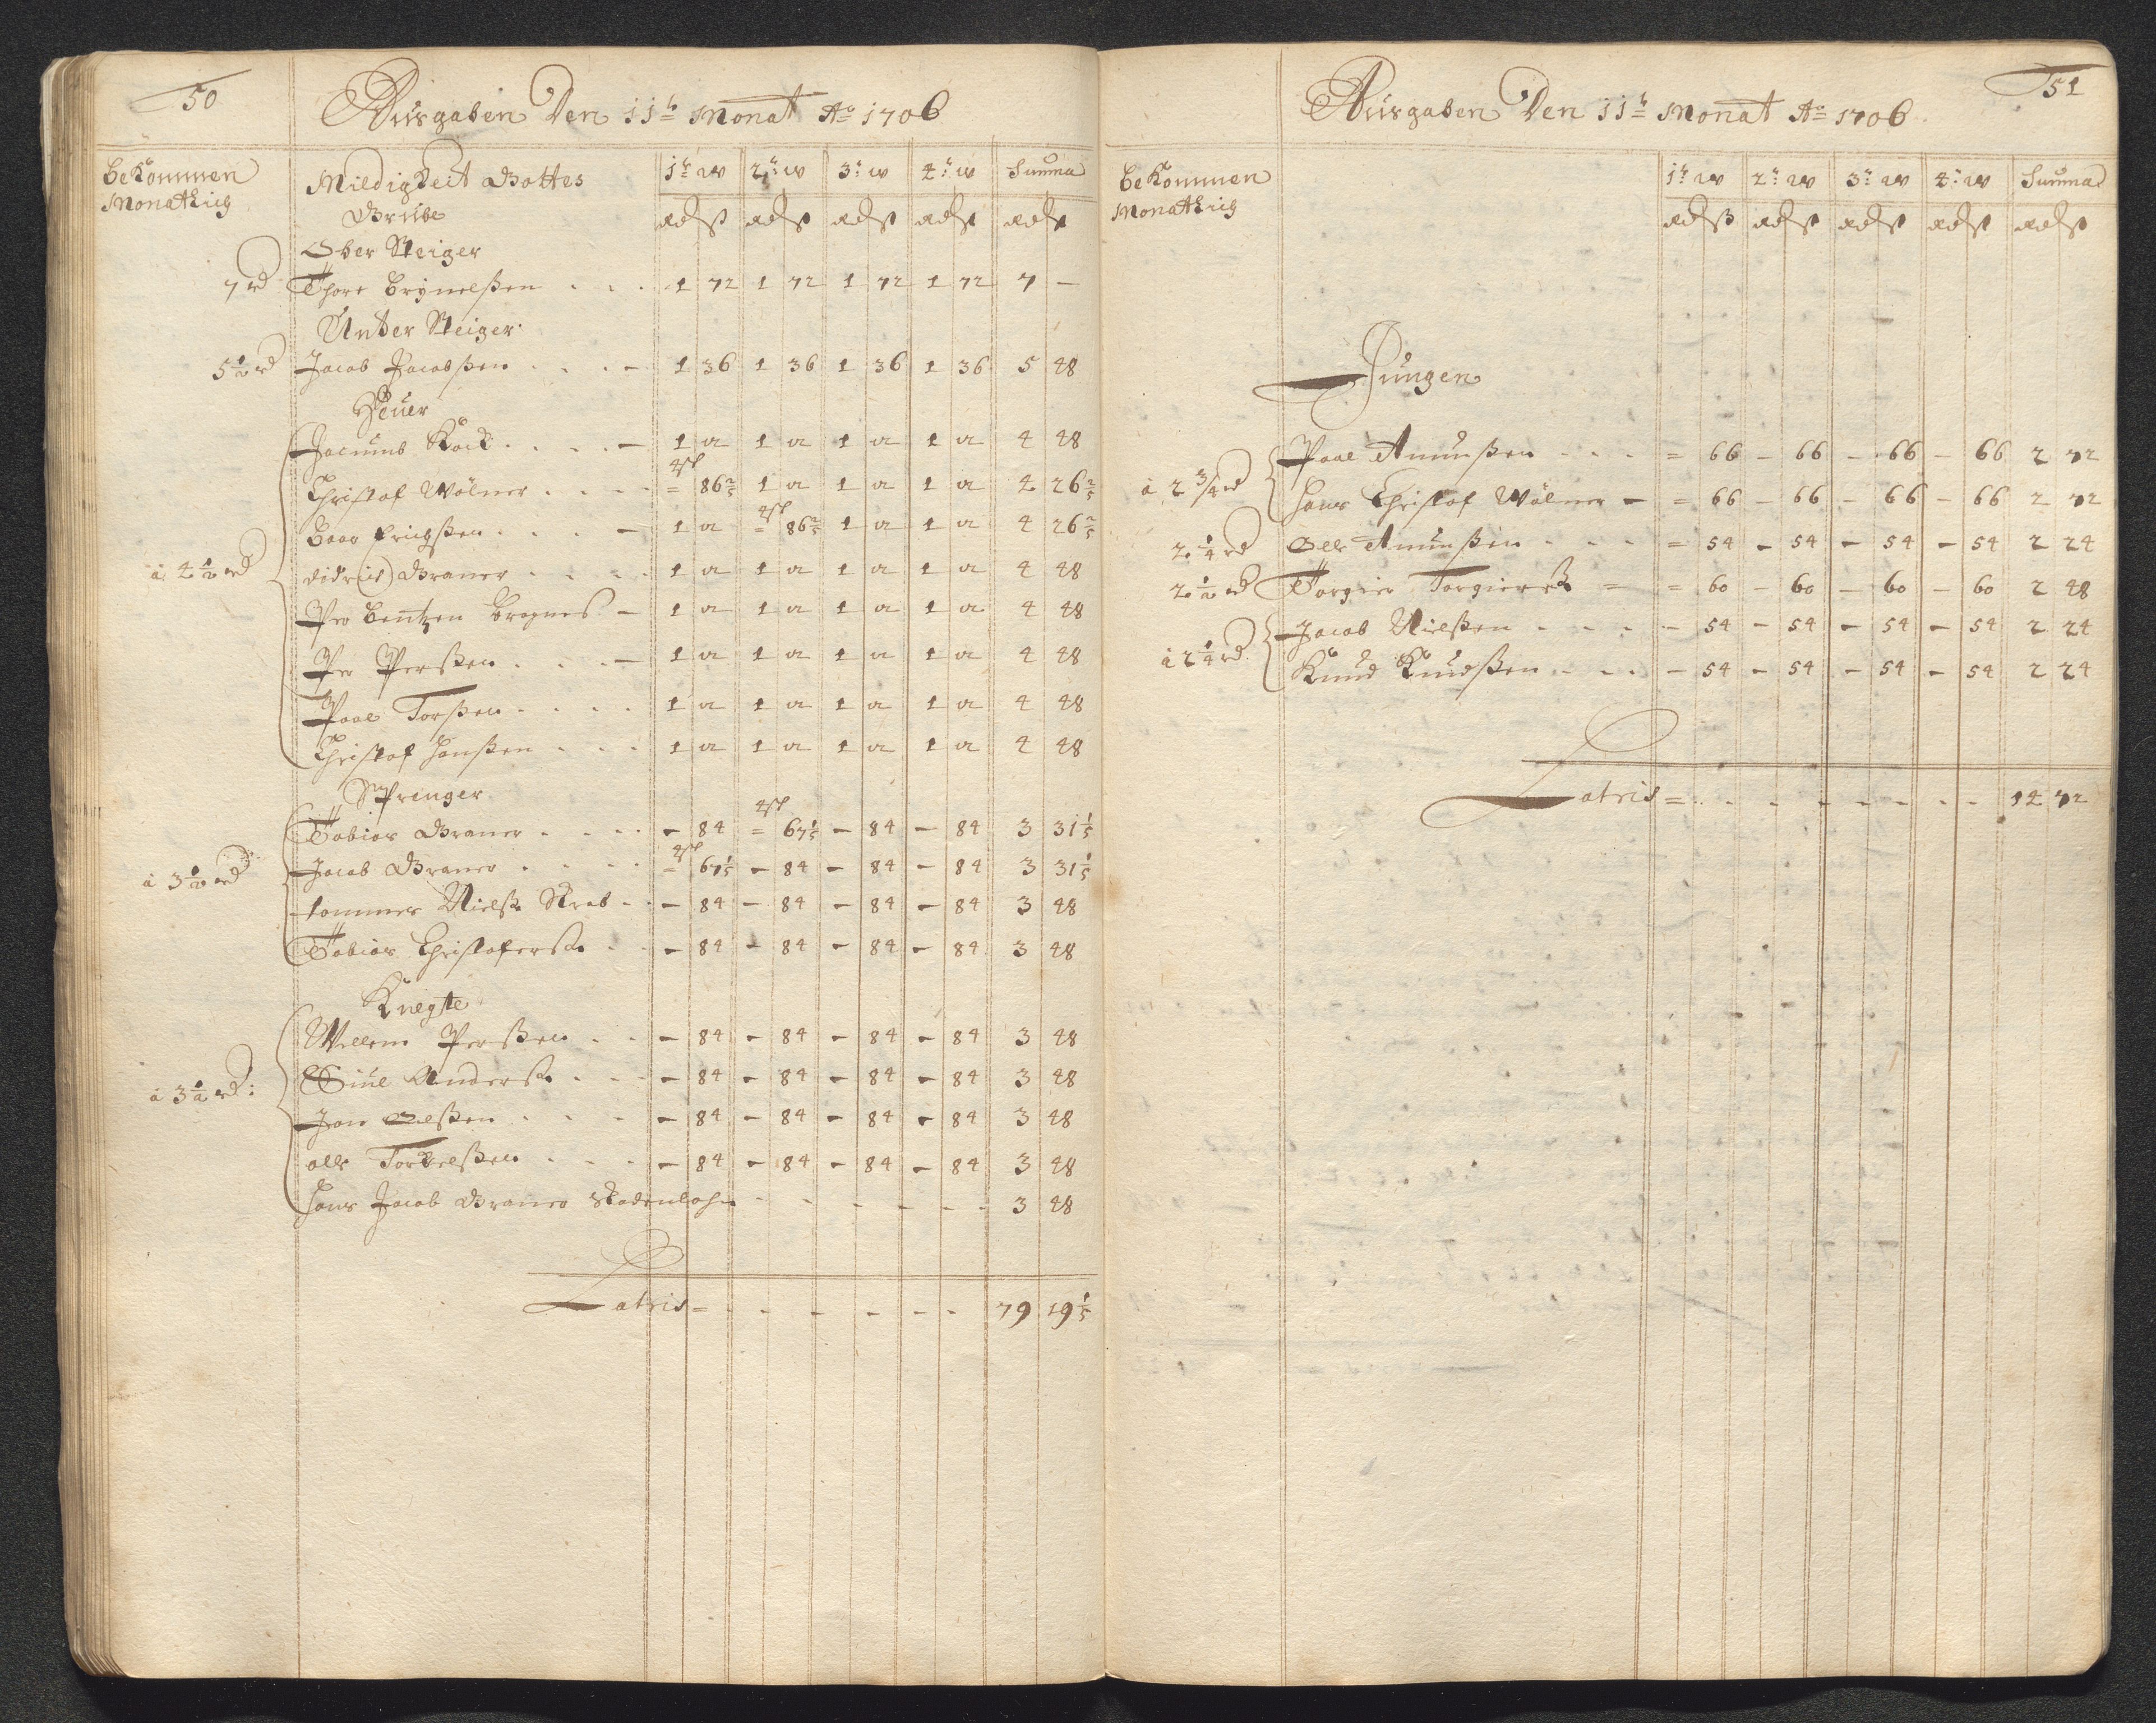 50
Ausgaben Den 11t Monat Ao 1706
bekommen Monathlig
Mildigkeit Gottes Grube
1t w 2t w 3t w 4t w Summa
Rd ß Rd ß Rd ß Rd ß Rd ß
Ober Steiger
7 rd Thore Brynelßen 1 72 1 72 1 72 1 72 7 -
Unter Steiger
5 1/2 rd Jacob Jacobßen 1 36 1 36 1 36 1 36 5 48
Heuer
Jacumb Kock 1 12 1 12 1 12 1 12 4 48
Christof Wölner = 86 2/5 1 12 1 12 1 12 4 26 2/5
Baar Erigßen 1 12 = 86 2/5 1 12 1 12 4 26 2/5
a 4 1/2 rd Didrich Graner 1 12 1 12 1 12 1 12 4 48
Per Bentzen Bragnes 1 12 1 12 1 12 1 12 4 48
Per Perßen 1 12 1 12 1 12 1 12 4 48
Paal Torßen 1 12 1 12 1 12 1 12 4 48
Christof Hanßen 1 12 1 12 1 12 1 12 4 48
Sprenger
Tobias Graner - 84 = 67 1/5 - 84 - 84 3 31 1/5
a 3 1/2 rd Jacob Graner = 67 1/5 - 84 - 84 - 84 3 31 1/5
Tommes Nielß Krab - 84 - 84 - 84 - 84 3 48
Tobias Christoferß - 84 - 84 - 84 - 84 3 48
Knegte
Willem Perßen - 84 - 84 - 84 - 84 3 48
a 3 1/2 rd: Giul Anderß - 84 - 84 - 84 - 84 3 48
Jon Olßen - 84 - 84 - 84 - 84 3 48
Olle Torkelßen - 84 - 84 - 84 - 84 3 48
Hans Jacob Graner Skadenlohn 3 48
Latris = 79 19 1/5
51
Ausgaben Den 11t Monat Ao 1706
bekommen Monathlig
1t w 2t w 3t w 4t w Summa
Rd ß Rd ß Rd ß Rd ß Rd ß
Jungen
a 2 3/4 rd Paal Amunßen = 66 - 66 - 66 - 66 2 72
Hans Christof Wölner = 66 - 66 - 66 - 66 2 72
2 1/4 rd Olle Amunßen = 54 - 54 - 54 - 54 2 24
2 1/2 rd Torgier Torgierß = 60 - 60 - 60 - 60 2 48
a 2 1/4 rd Jacob Nielßen - 54 - 54 - 54 - 54 2 24
Knud Knudßen - 54 - 54 - 54 - 54 2 24
Latris = 14 72